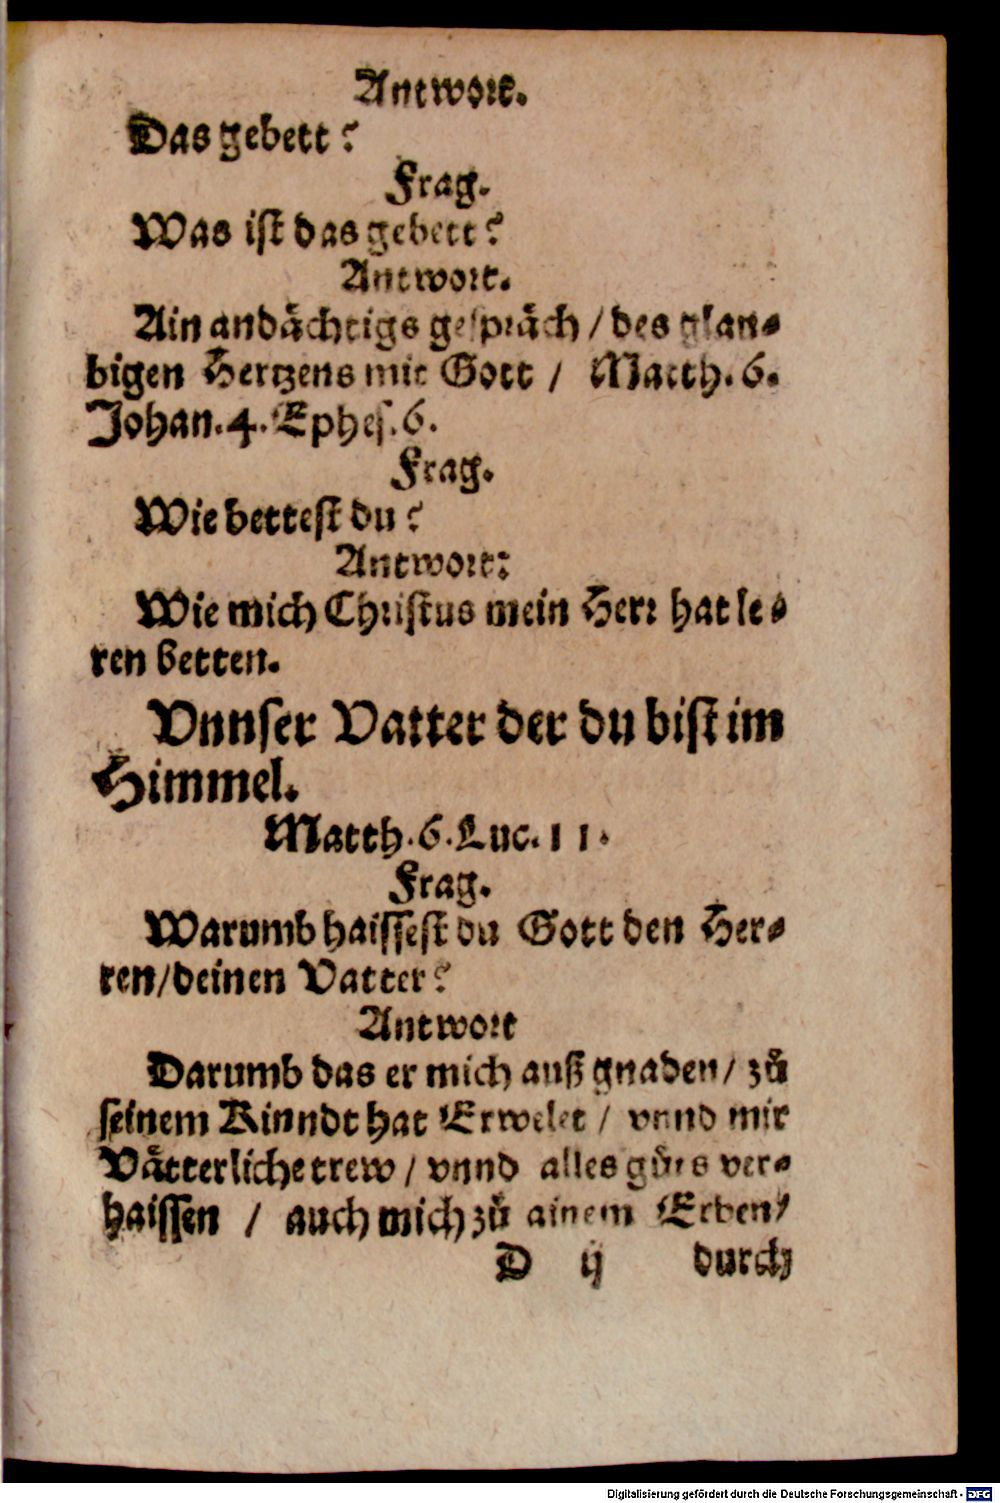 Antwort.
Das gebett?
Frag.
Was ist das gebett?
Antwort.
Ain andaͤchtigs gespraͤch / des glau-
bigen Hertzens mit Gott / Matth. 6.
Johan. 4. Ephes. 6.
Frag.
Wie bettest du?
Antwort:
Wie mich Christus mein Herr hat le-
ren betten.
Vnnser Vatter der du bist im
Himmel.
Matth. 6. Luc. 11.
Frag.
Warumb haissest du Gott den Her-
ren / deinen Vatter?
Antwort
Darumb das er mich auß gnaden / zuͦ
seinem Kinndt hat Erwelet / vnnd mir
Vaͤtterliche trew / vnnd alles guͦts ver-
haissen / auch mich zuͦ ainem Erben /
D ij durch
Digitalisierung gefördert durch die Deutsche Forschungsgemeinschaft - DFG